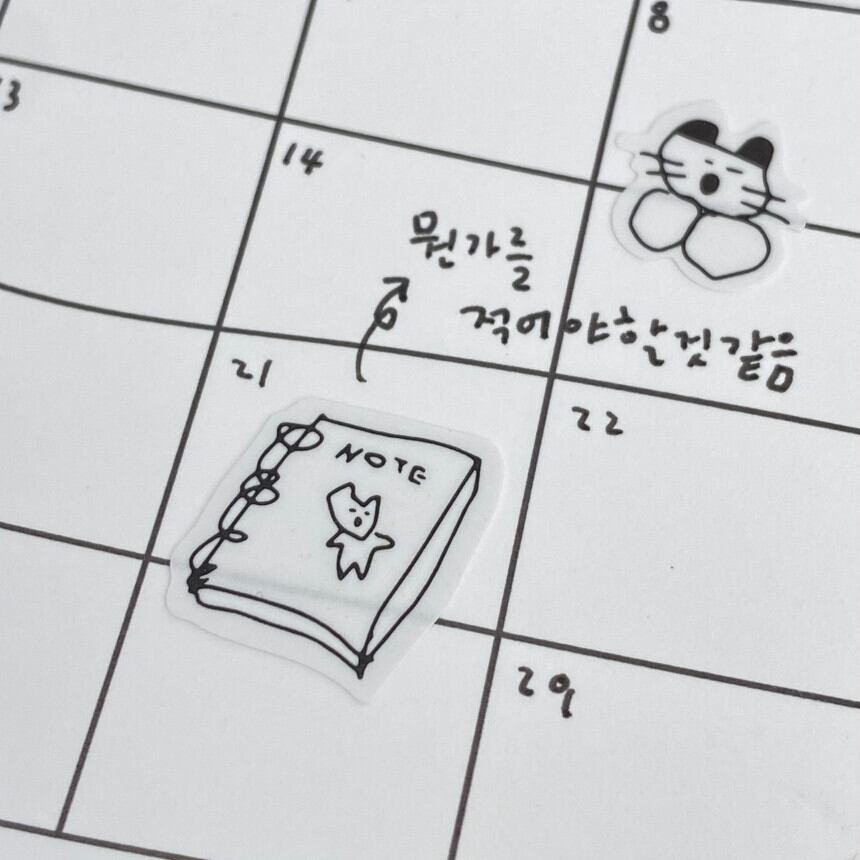 8
13
14
뭔가를
적어야할것같음
21
22
NOTE
29